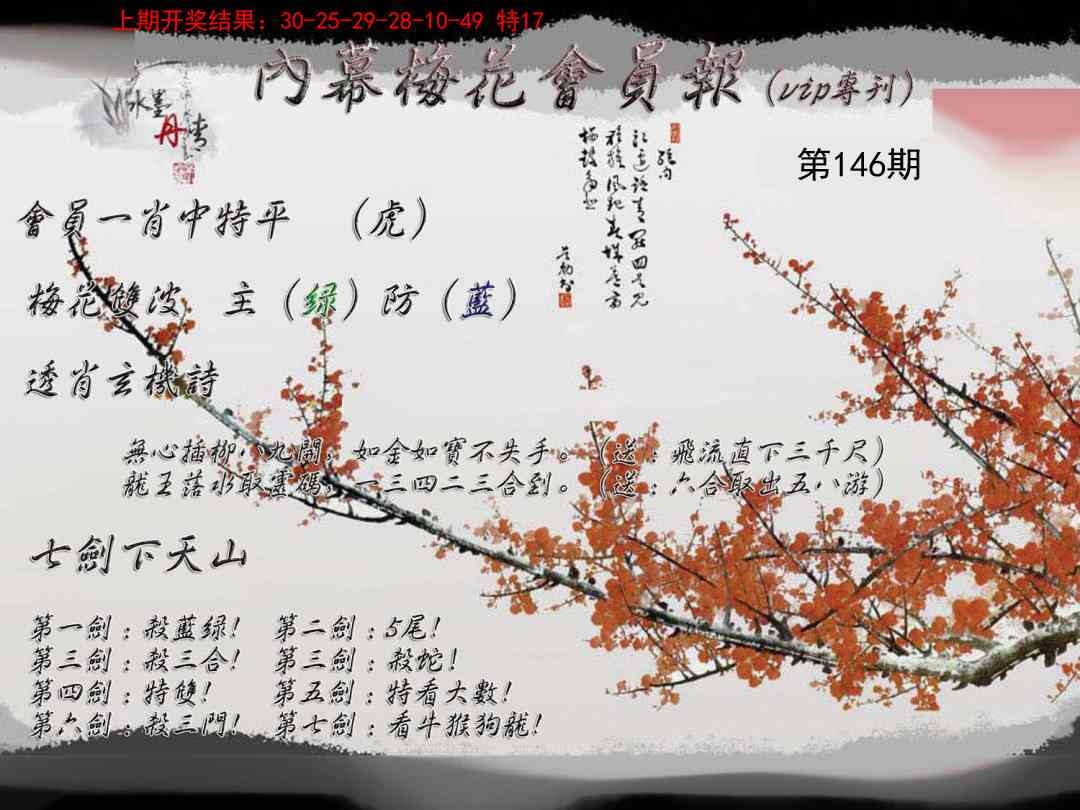 上期开奖结果：30-25-29-28-10-49 特17
內幕梅花會員報（vip專刊）
水墨
丹青
第146期
會員一肖中特平　（虎）
梅花雙波　主（绿）防（藍）
透肖玄機詩
無心插柳八九開，如金如寶不失手。（送：飛流直下三千尺）
龍王落水取靈碼，一三四二三合到。（送：六合取出五八游）
七劍下天山
第一劍：殺藍绿！　第二劍：5尾！
第三劍：殺三合！　第三劍：殺蛇！
第四劍：特雙！　第五劍：特看大數！
第六劍：殺三門！　第七劍：看牛猴狗龍！